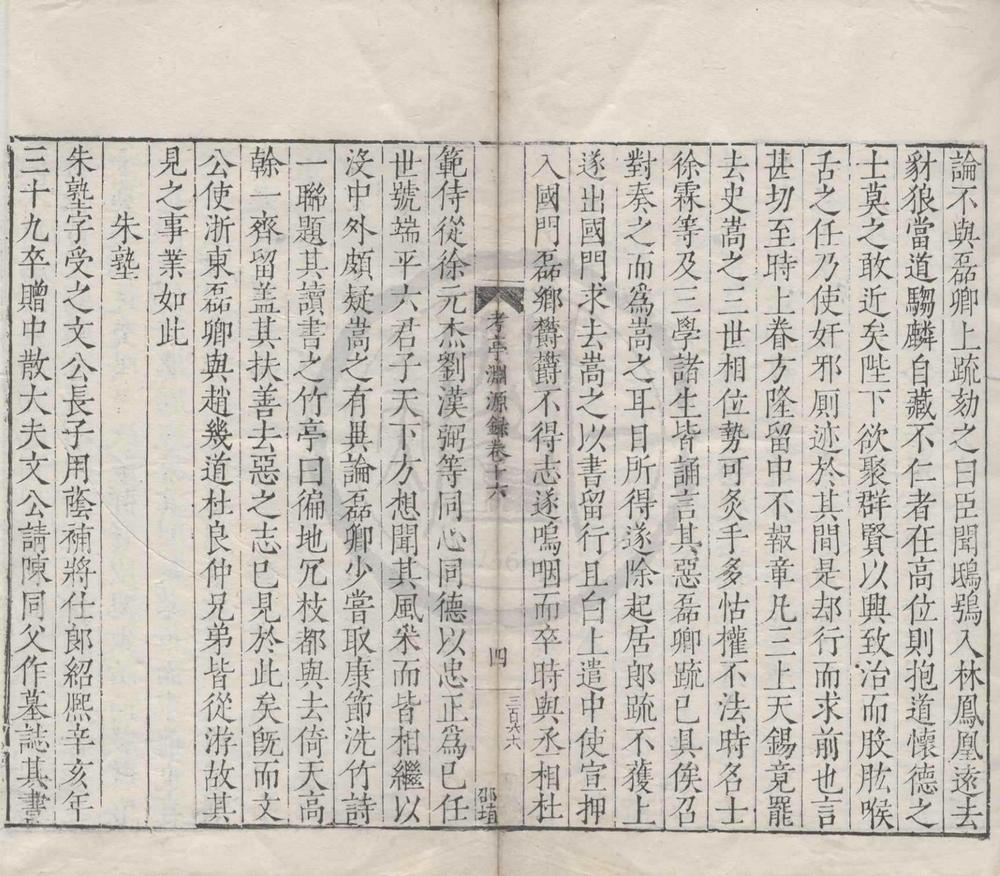 論不與磊卿上疏劾之曰臣聞鴟鴞入林鳳凰遠去
豺狼當道騶麟自藏不仁者在高位則抱道懷德之
士莫之敢近矣陛下欲聚群賢以興致治而股肱喉
舌之任乃使奸邪厠迹於其間是却行而求前也言
甚切至時上眷方隆留中不報章凡三上天錫竟罷
去史嵩之三世相位勢可炙手多怙權不法時名士
徐霖等及三學諸生皆誦言其惡磊卿疏已具俟召
對奏之而爲嵩之耳目所得遂除起居郎疏不獲上
遂出國門求去嵩之以書留行且白上遣中使宣押
入國門磊鄉欝欝不得志遂嗚咽而卒時與丞相杜
考亭淵源錄卷十六
四
三百六十
邵埴
範侍從徐元杰劉漢弼等同心同德以忠正爲己任
世號端平六君子天下方想聞其風采而皆相繼以
沒中外頗疑嵩之有異論磊卿少嘗取康節洗竹詩
一聯題其讀書之竹亭曰徧地冗枝都與去倚天高
榦一齊留盖其扶善去惡之志已見於此矣旣而文
公使浙東磊卿與趙幾道杜良仲兄弟皆從游故其
見之事業如此
朱塾
朱塾字受之文公長子用蔭補將仕郎紹熙辛亥年
三十九卒贈中散大夫文公請陳同父作墓誌其書